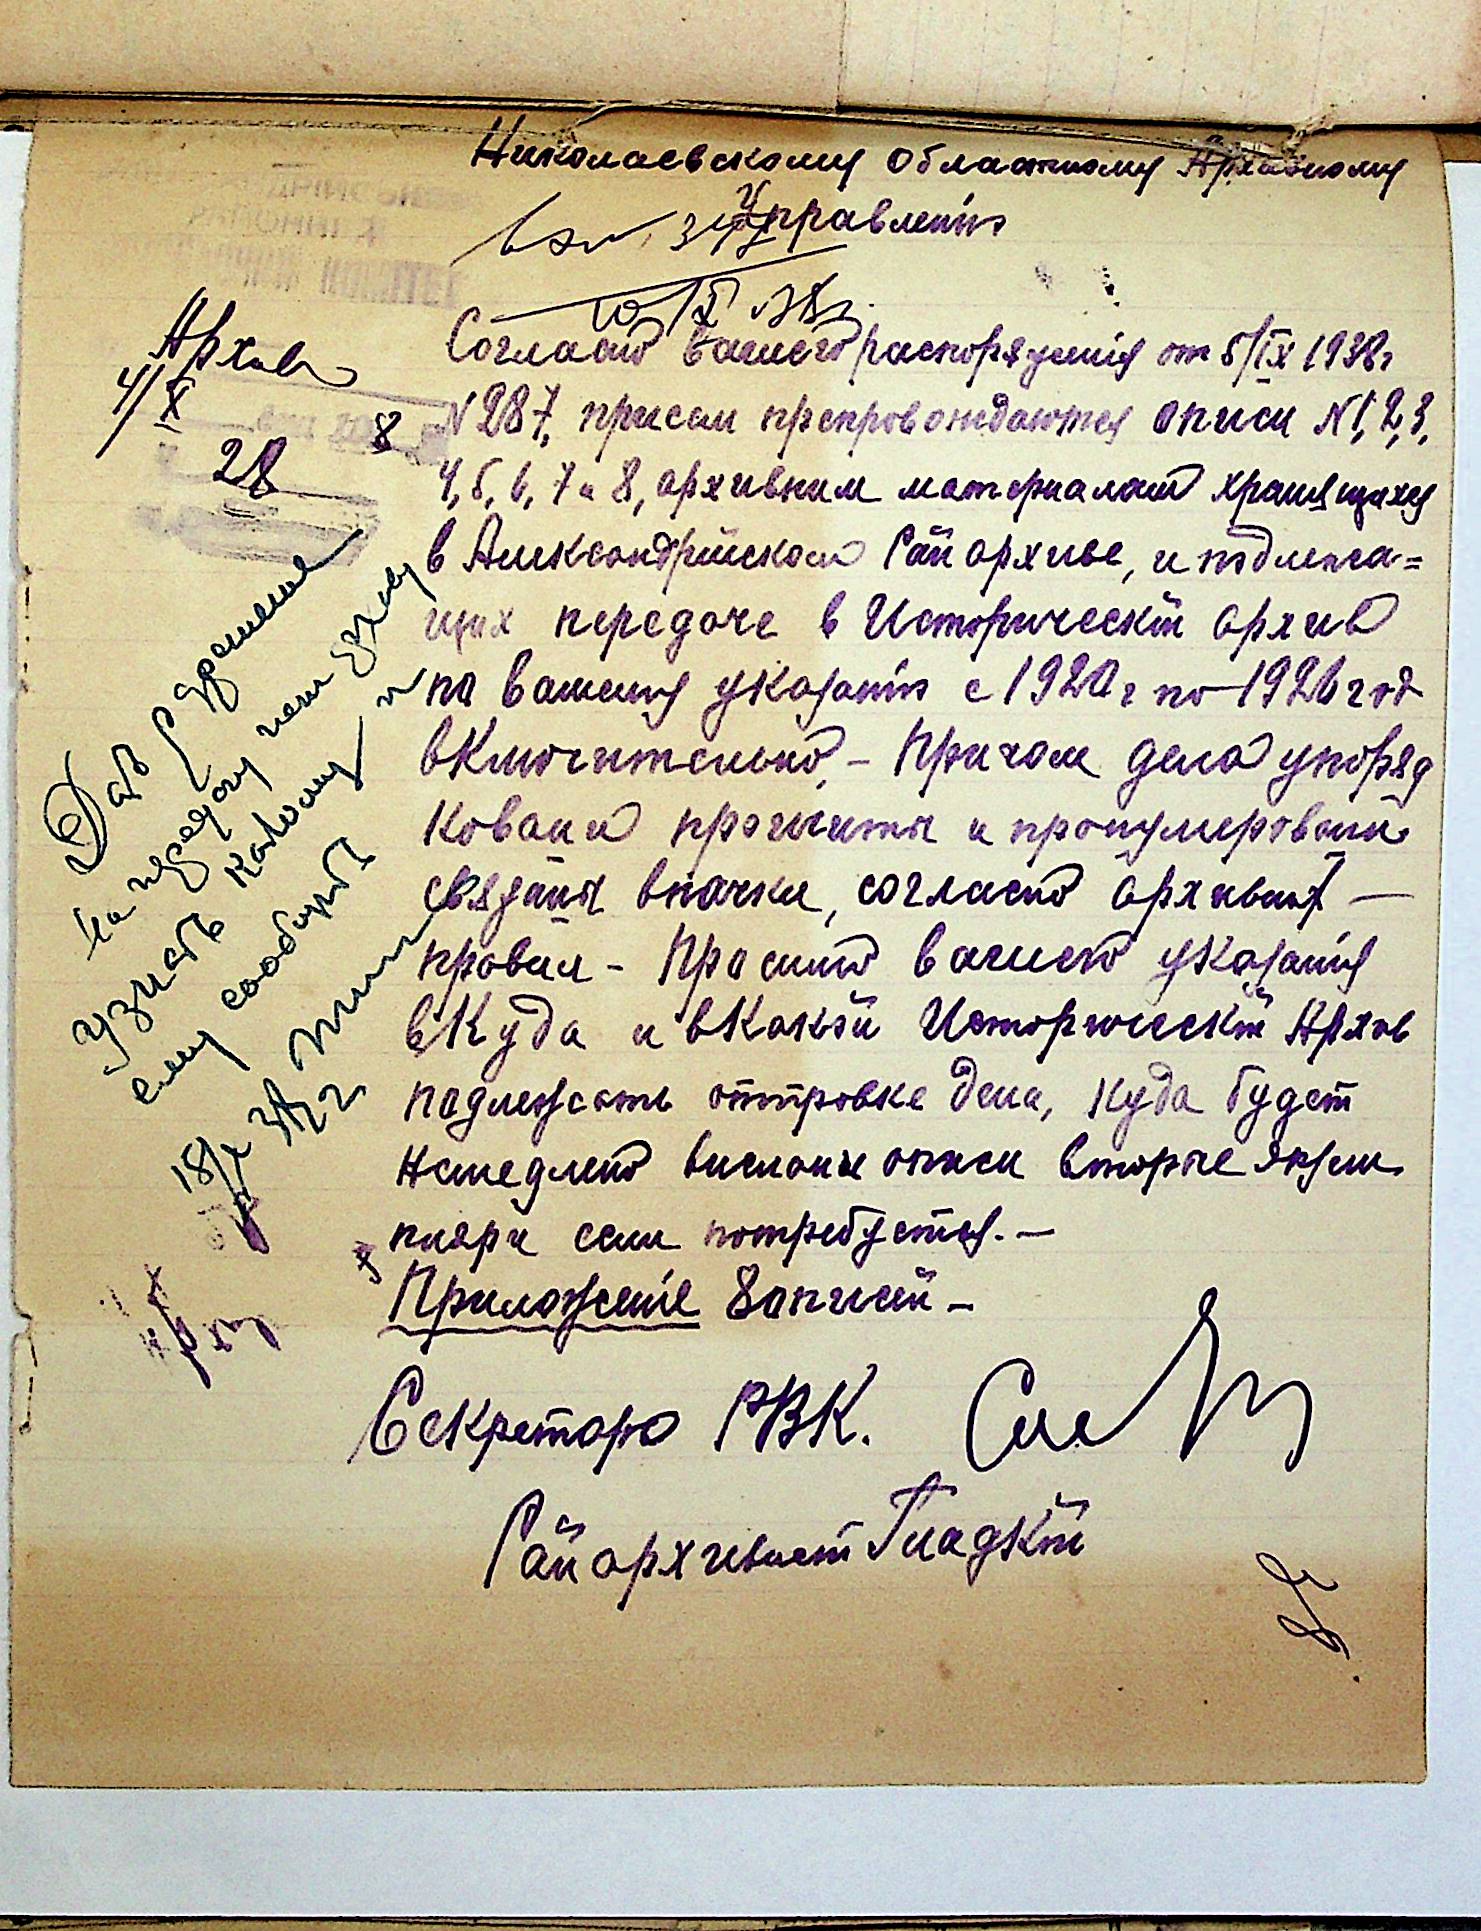 Николаевскому Областному Архивному
Управленію
10/IX 38г.
Архив
4/X
28
8
Согласно вашего распоряженія от 5/IX 1938г
N 287, присем препровождаются описи N1,2,3,
4, 5, 6, 7 и 8, архивним материалам хранящихся
в Александрійском Райархиве, и подлежа=
щих передаче в Историческій архив
по вашему указанію с 1920г по 1926 год
включительно, - Причом дела упоряд
ковани прошиты и пронумеровани
связаны впачки, согласно архивных —
правил - Просимо вашего указанія
вКуда и вКакой Историческій Архив
подлежать отправке дела, куда будет
немедлено висланы описи вторые екзем
пляри если потребуется. —
Приложеніе 8 описей -
Секретарь РВК.
Райархивист Гладкій
Дать разрешение
на передачу
узнать какому и
ему сообщить
18/X